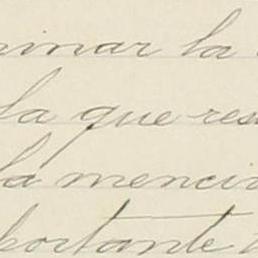 minar la
la que res
la menci
portante